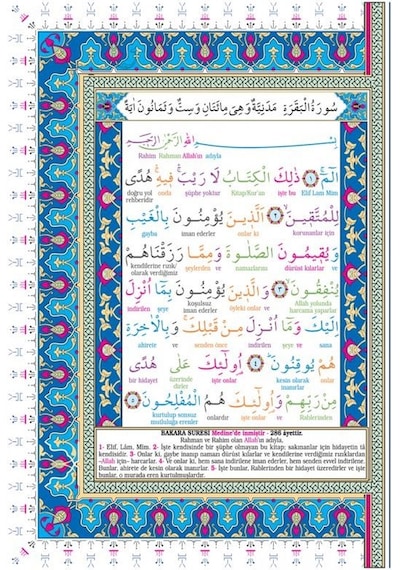 سُورَةُ الْبَقَرَةِ مَدَنِيَّةٌ وَهِيَ مِائَتَانِ وَسِتٌّ وَثَمَانُونَ اٰيَةً
بِسْمِ اللّٰهِ الرَّحْمٰنِ الرَّحِيمِ
Rahim Rahman Allah'ın adıyla
الٓمٓ ﴿١﴾ ذٰلِكَ الْكِتَابُ لَا رَيْبَ فِيهِ هُدًى
doğru yol rehberidir onda şüphe yoktur Kitap/Kur'an işte bu Elif Lam Mim
لِلْمُتَّقِينَ ﴿٢﴾ اَلَّذِينَ يُؤْمِنُونَ بِالْغَيْبِ
gayba iman ederler onlar ki korunanlar için
وَيُقِيمُونَ الصَّلٰوةَ وَمِمَّا رَزَقْنَاهُمْ
kendilerine rızık olarak verdiğimiz şeylerden ve namazlarını dürüst kılarlar ve
يُنْفِقُونَ ﴿٣﴾ وَالَّذِينَ يُؤْمِنُونَ بِمَٓا اُنْزِلَ
indirilen şeye koşulsuz iman ederler onlar ki ve Allah yolunda harcama yaparlar
اِلَيْكَ وَمَٓا اُنْزِلَ مِنْ قَبْلِكَ وَبِالْاٰخِرَةِ
ahirete ve senden önce indirilen şeye ve sana
هُمْ يُوقِنُونَ ﴿٤﴾ اُو۬لٰٓئِكَ عَلٰى هُدًى
bir hidayet üzerinde dirler işte onlar kesin olarak inanırlar onlar
مِنْ رَبِّهِمْ وَاُو۬لٰٓئِكَ هُمُ الْمُفْلِحُونَ ﴿٥﴾
kurtulup sonsuz mutluluğa erenler onlar işte onlar ve Rablerinden
BAKARA SURESİ Medine'de inmiştir - 286 âyettir.
Rahman ve Rahim olan Allah'ın adıyla,
1- Elif, Lâm, Mim. 2- İşte kendisinde bir şüphe olmayan bu kitap; sakınanlar için hidayetin tâ
kendisidir. 3- Onlar ki, gaybe inanıp namazı dürüst kılarlar ve kendilerine verdiğimiz rızıklardan
-Allah için- harcarlar. 4- Ve onlar ki, hem sana indirilene iman ederler, hem senden evvel indirilene.
Bunlar, ahirete de kesin olarak inanırlar. 5- İşte bunlar, Rablerinden bir hidayet üzeredirler ve işte
bunlar, o murada eren kurtulmuşlardır.